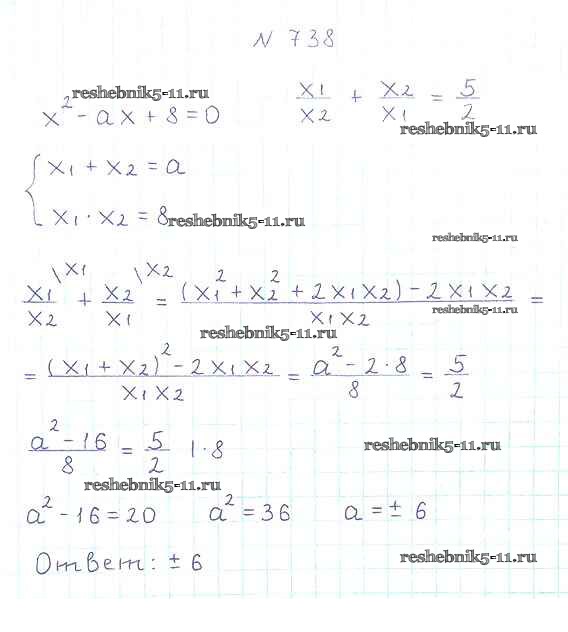 N 738
reshebnik5-11.ru
x² - ax + 8 = 0    x₁/x₂ + x₂/x₁ = 5/2
reshebnik5-11.ru
{ x₁ + x₂ = a
x₁ · x₂ = 8
reshebnik5-11.ru
reshebnik5-11.ru
x₁/x₂ \x₁ + x₂/x₁ \x₂ = ((x₁² + x₂² + 2x₁x₂) - 2x₁x₂)/(x₁x₂) =
reshebnik5-11.ru
reshebnik5-11.ru
= ((x₁ + x₂)² - 2x₁x₂)/(x₁x₂) = (a² - 2·8)/8 = 5/2
(a² - 16)/8 = 5/2 |·8
reshebnik5-11.ru
reshebnik5-11.ru
a² - 16 = 20    a² = 36    a = ± 6
Ответ: ± 6
reshebnik5-11.ru